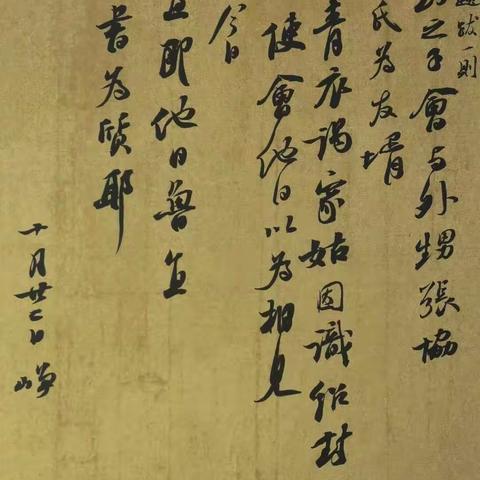 跋一則
之子會与外甥張協
氏為友壻
青衣謁家姑固識紹封
使會他日以為相見
今日
直即他日魯直
書為贋耶
十月廿二日